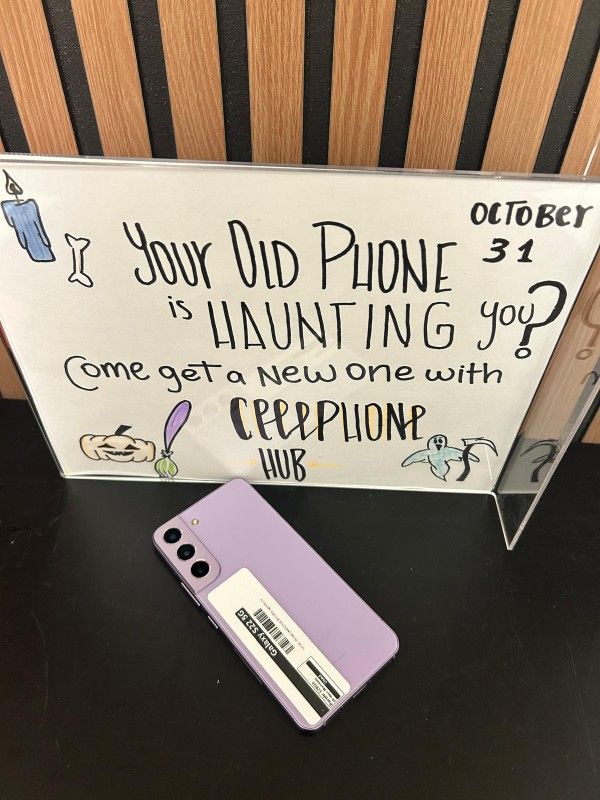 OCTOBER
31
YOUR OLD PHONE
is HAUNTING you?
Come get a New one with
CEEEPHONE
HUB
Galaxy S22 5G